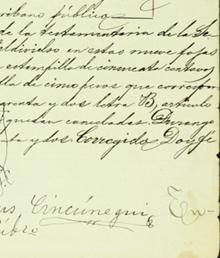 cribano público
re la testamentaria de la Se
dividido en estas nueve fojas
estampilla de cincuenta centavos
lla de cinco pesos que correspon
arenta y dos letra B, artículo
quedan canceladas. Durango
ta y dos. Corregido Doy fe
Cincúnegui